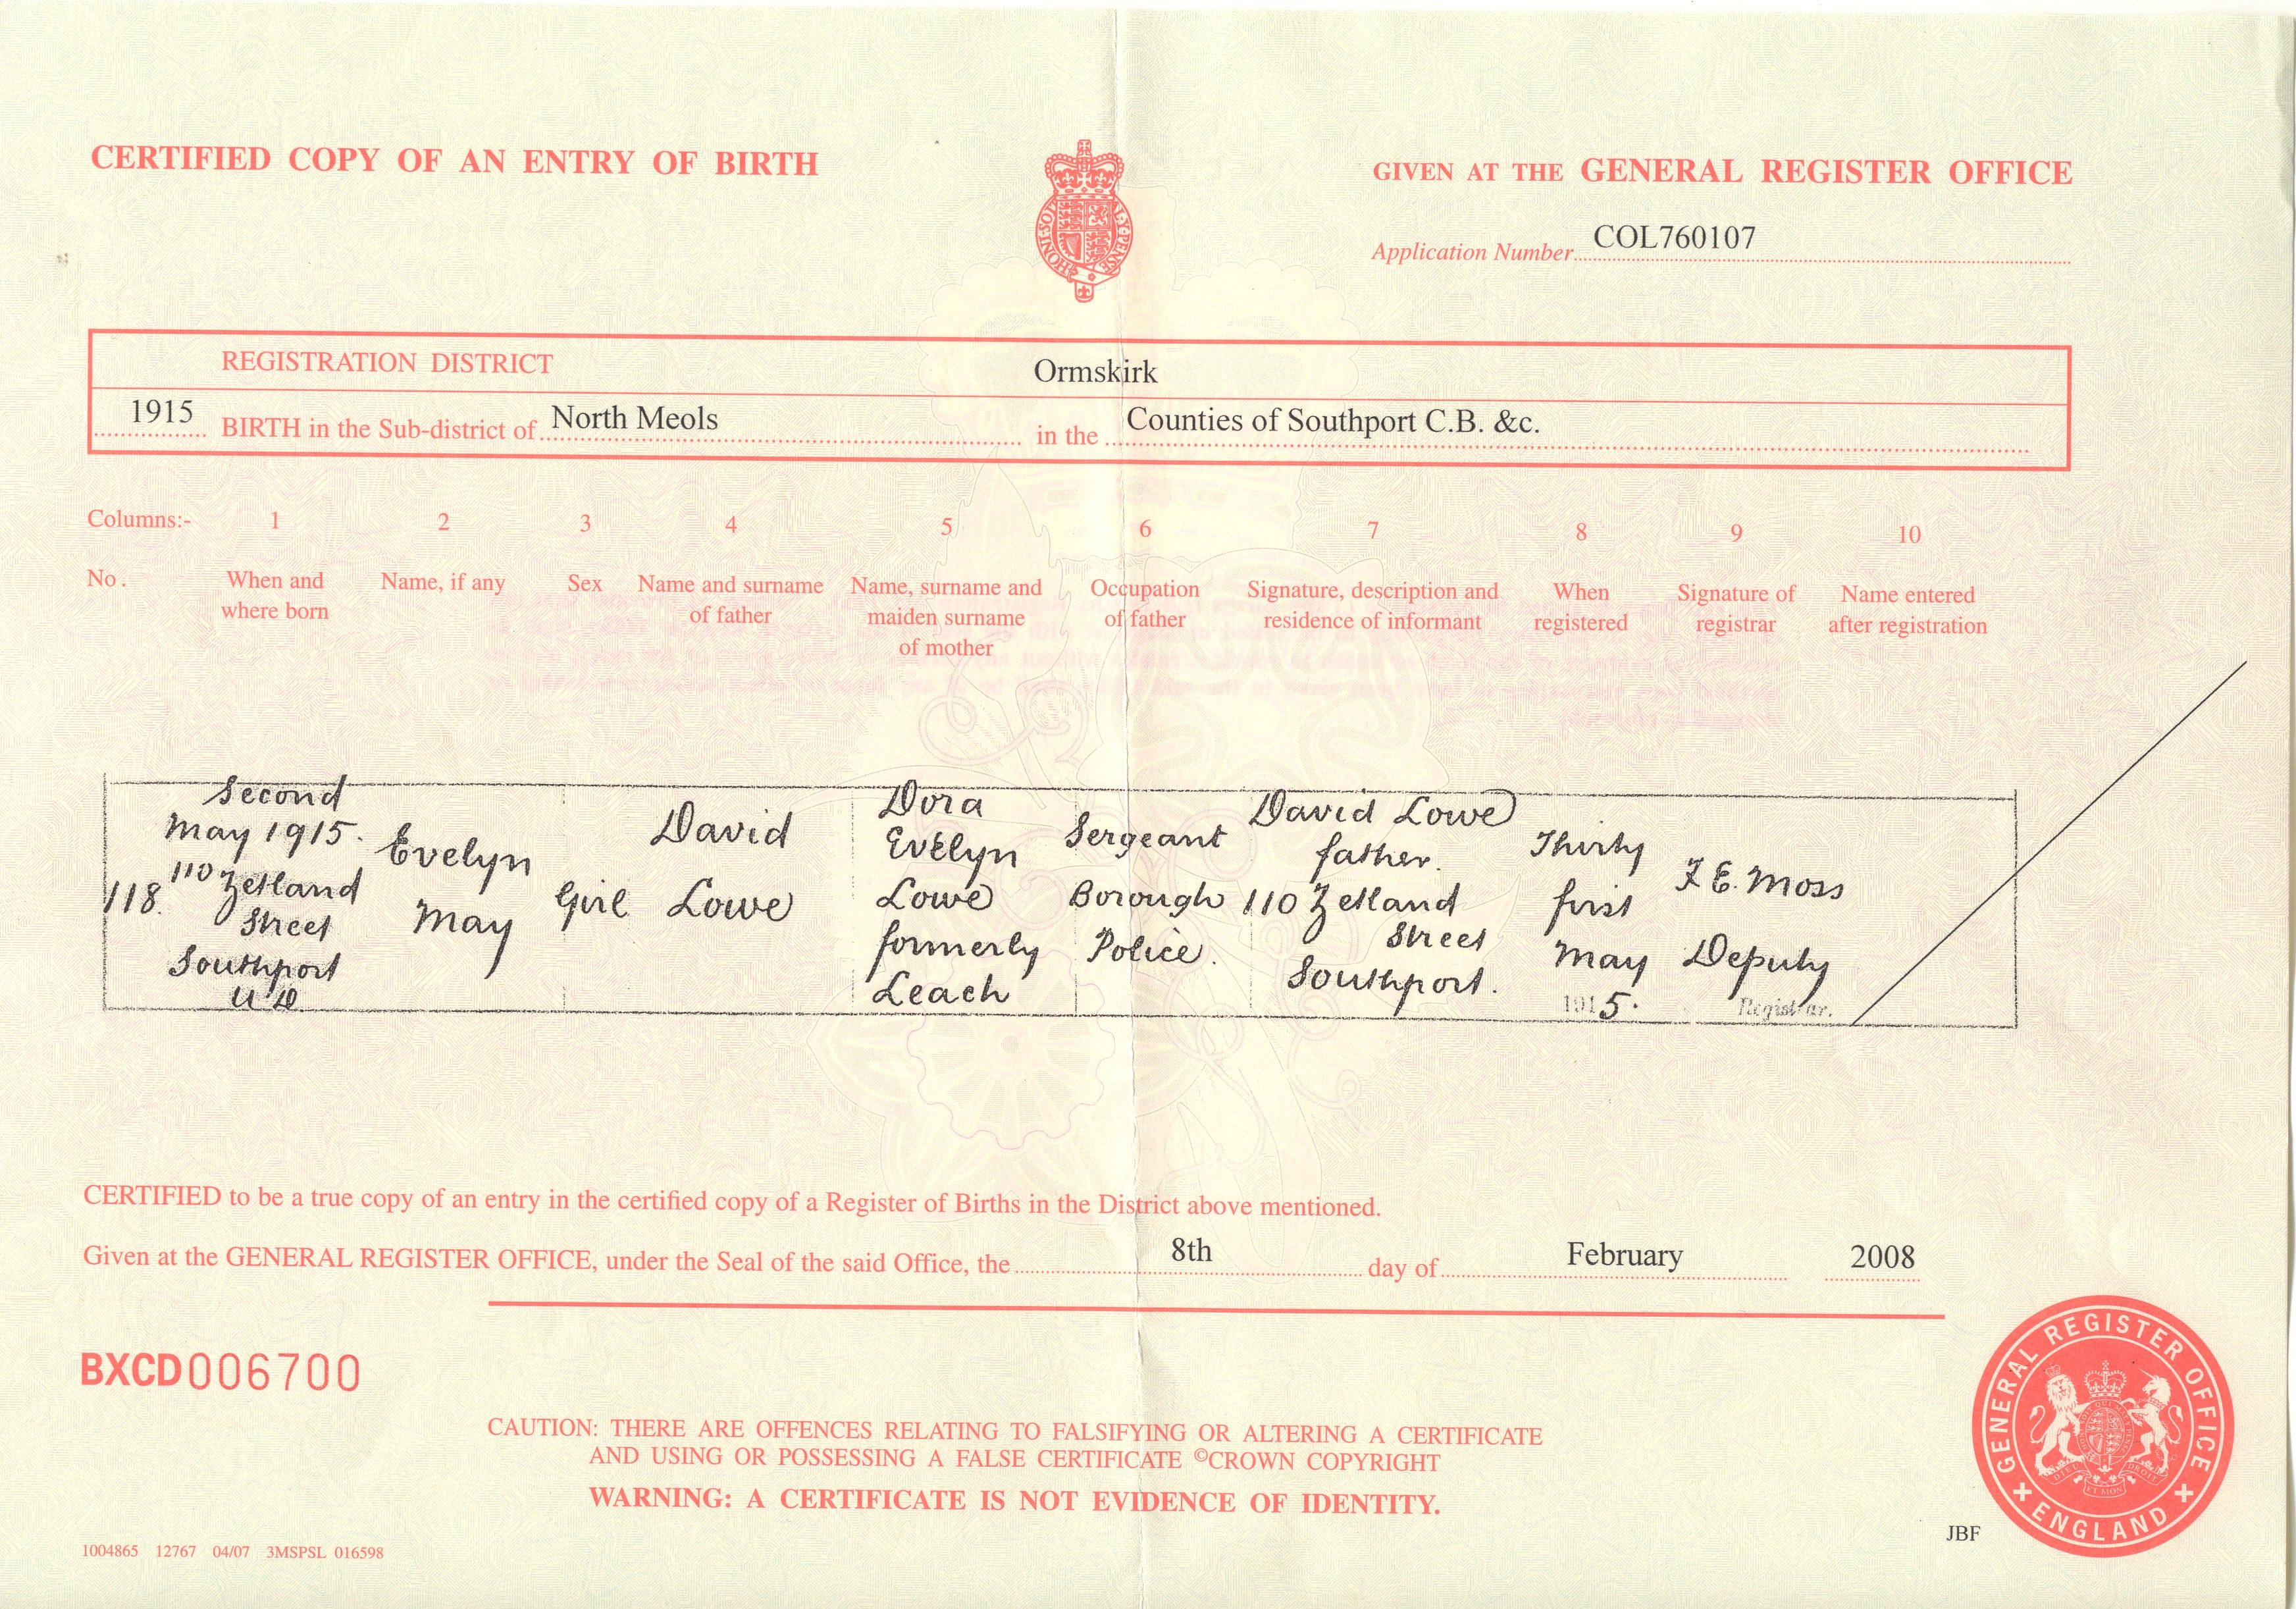 CERTIFIED COPY OF AN ENTRY OF BIRTH
GIVEN AT THE GENERAL REGISTER OFFICE
HONI·SOI AL·Y·PENSE
Application Number COL760107
REGISTRATION DISTRICT Ormskirk
1915 BIRTH in the Sub-district of North Meols in the Counties of Southport C.B. &c.
Columns:- 1 2 3 4 5 6 7 8 9 10
No. When and where born
Name, if any
Sex
Name and surname of father
Name, surname and maiden surname of mother
Occupation of father
Signature, description and residence of informant
When registered
Signature of registrar
Name entered after registration
118.
Second
May 1915.
110 Zetland
Street
Southport
U D
Evelyn
May
Girl
David
Lowe
Dora
Evelyn
Lowe
formerly
Leach
Sergeant
Borough
Police.
David Lowe
father.
110 Zetland
Street
Southport.
Thirty
first
May
1915.
F E. Moss
Deputy
Registrar.
CERTIFIED to be a true copy of an entry in the certified copy of a Register of Births in the District above mentioned.
Given at the GENERAL REGISTER OFFICE, under the Seal of the said Office, the 8th day of February 2008
BXCD006700
CAUTION: THERE ARE OFFENCES RELATING TO FALSIFYING OR ALTERING A CERTIFICATE
AND USING OR POSSESSING A FALSE CERTIFICATE ©CROWN COPYRIGHT
WARNING: A CERTIFICATE IS NOT EVIDENCE OF IDENTITY.
GENERAL REGISTER OFFICE
ENGLAND
JBF
1004865 12767 04/07 3MSPSL 016598